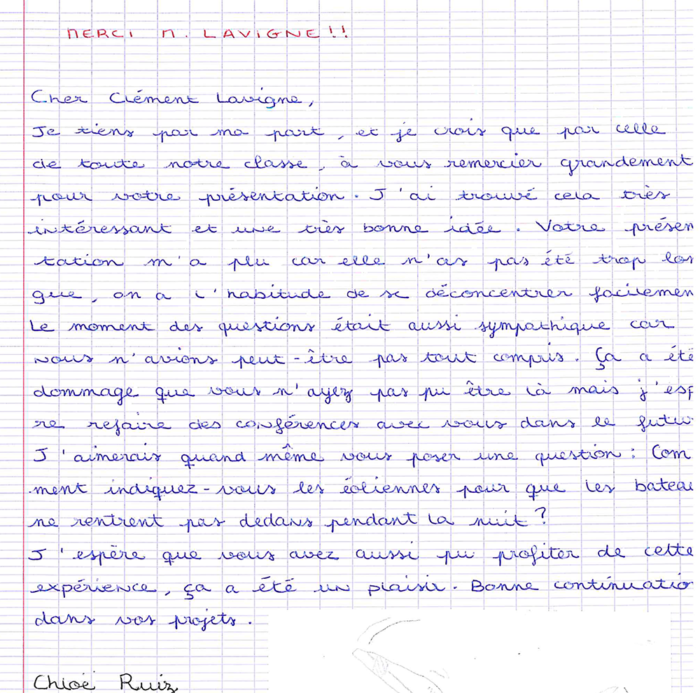 MERCI M. LAVIGNE!!
Cher Clément Lavigne,
Je tiens par ma part, et je crois que par celle
de toute notre classe, à vous remercier grandement
pour votre présentation. J'ai trouvé cela très
intéressant et une très bonne idée. Votre présen
tation m'a plu car elle n'as pas été trop lon
gue, on a l'habitude de se déconcentrer facilemen
Le moment des questions était aussi sympathique car
nous n'avions peut-être pas tout compris. Ça a été
dommage que vous n'ayez pas pu être là mais j'esp
re refaire des conférences avec vous dans le futur
J'aimerais quand même vous poser une question : Com
ment indiquez-vous les éoliennes pour que les bateau
ne rentrent pas dedans pendant la nuit ?
J'espère que vous avez aussi pu profiter de cette
expérience, ça a été un plaisir. Bonne continuatio
dans vos projets.
Chloé Ruiz